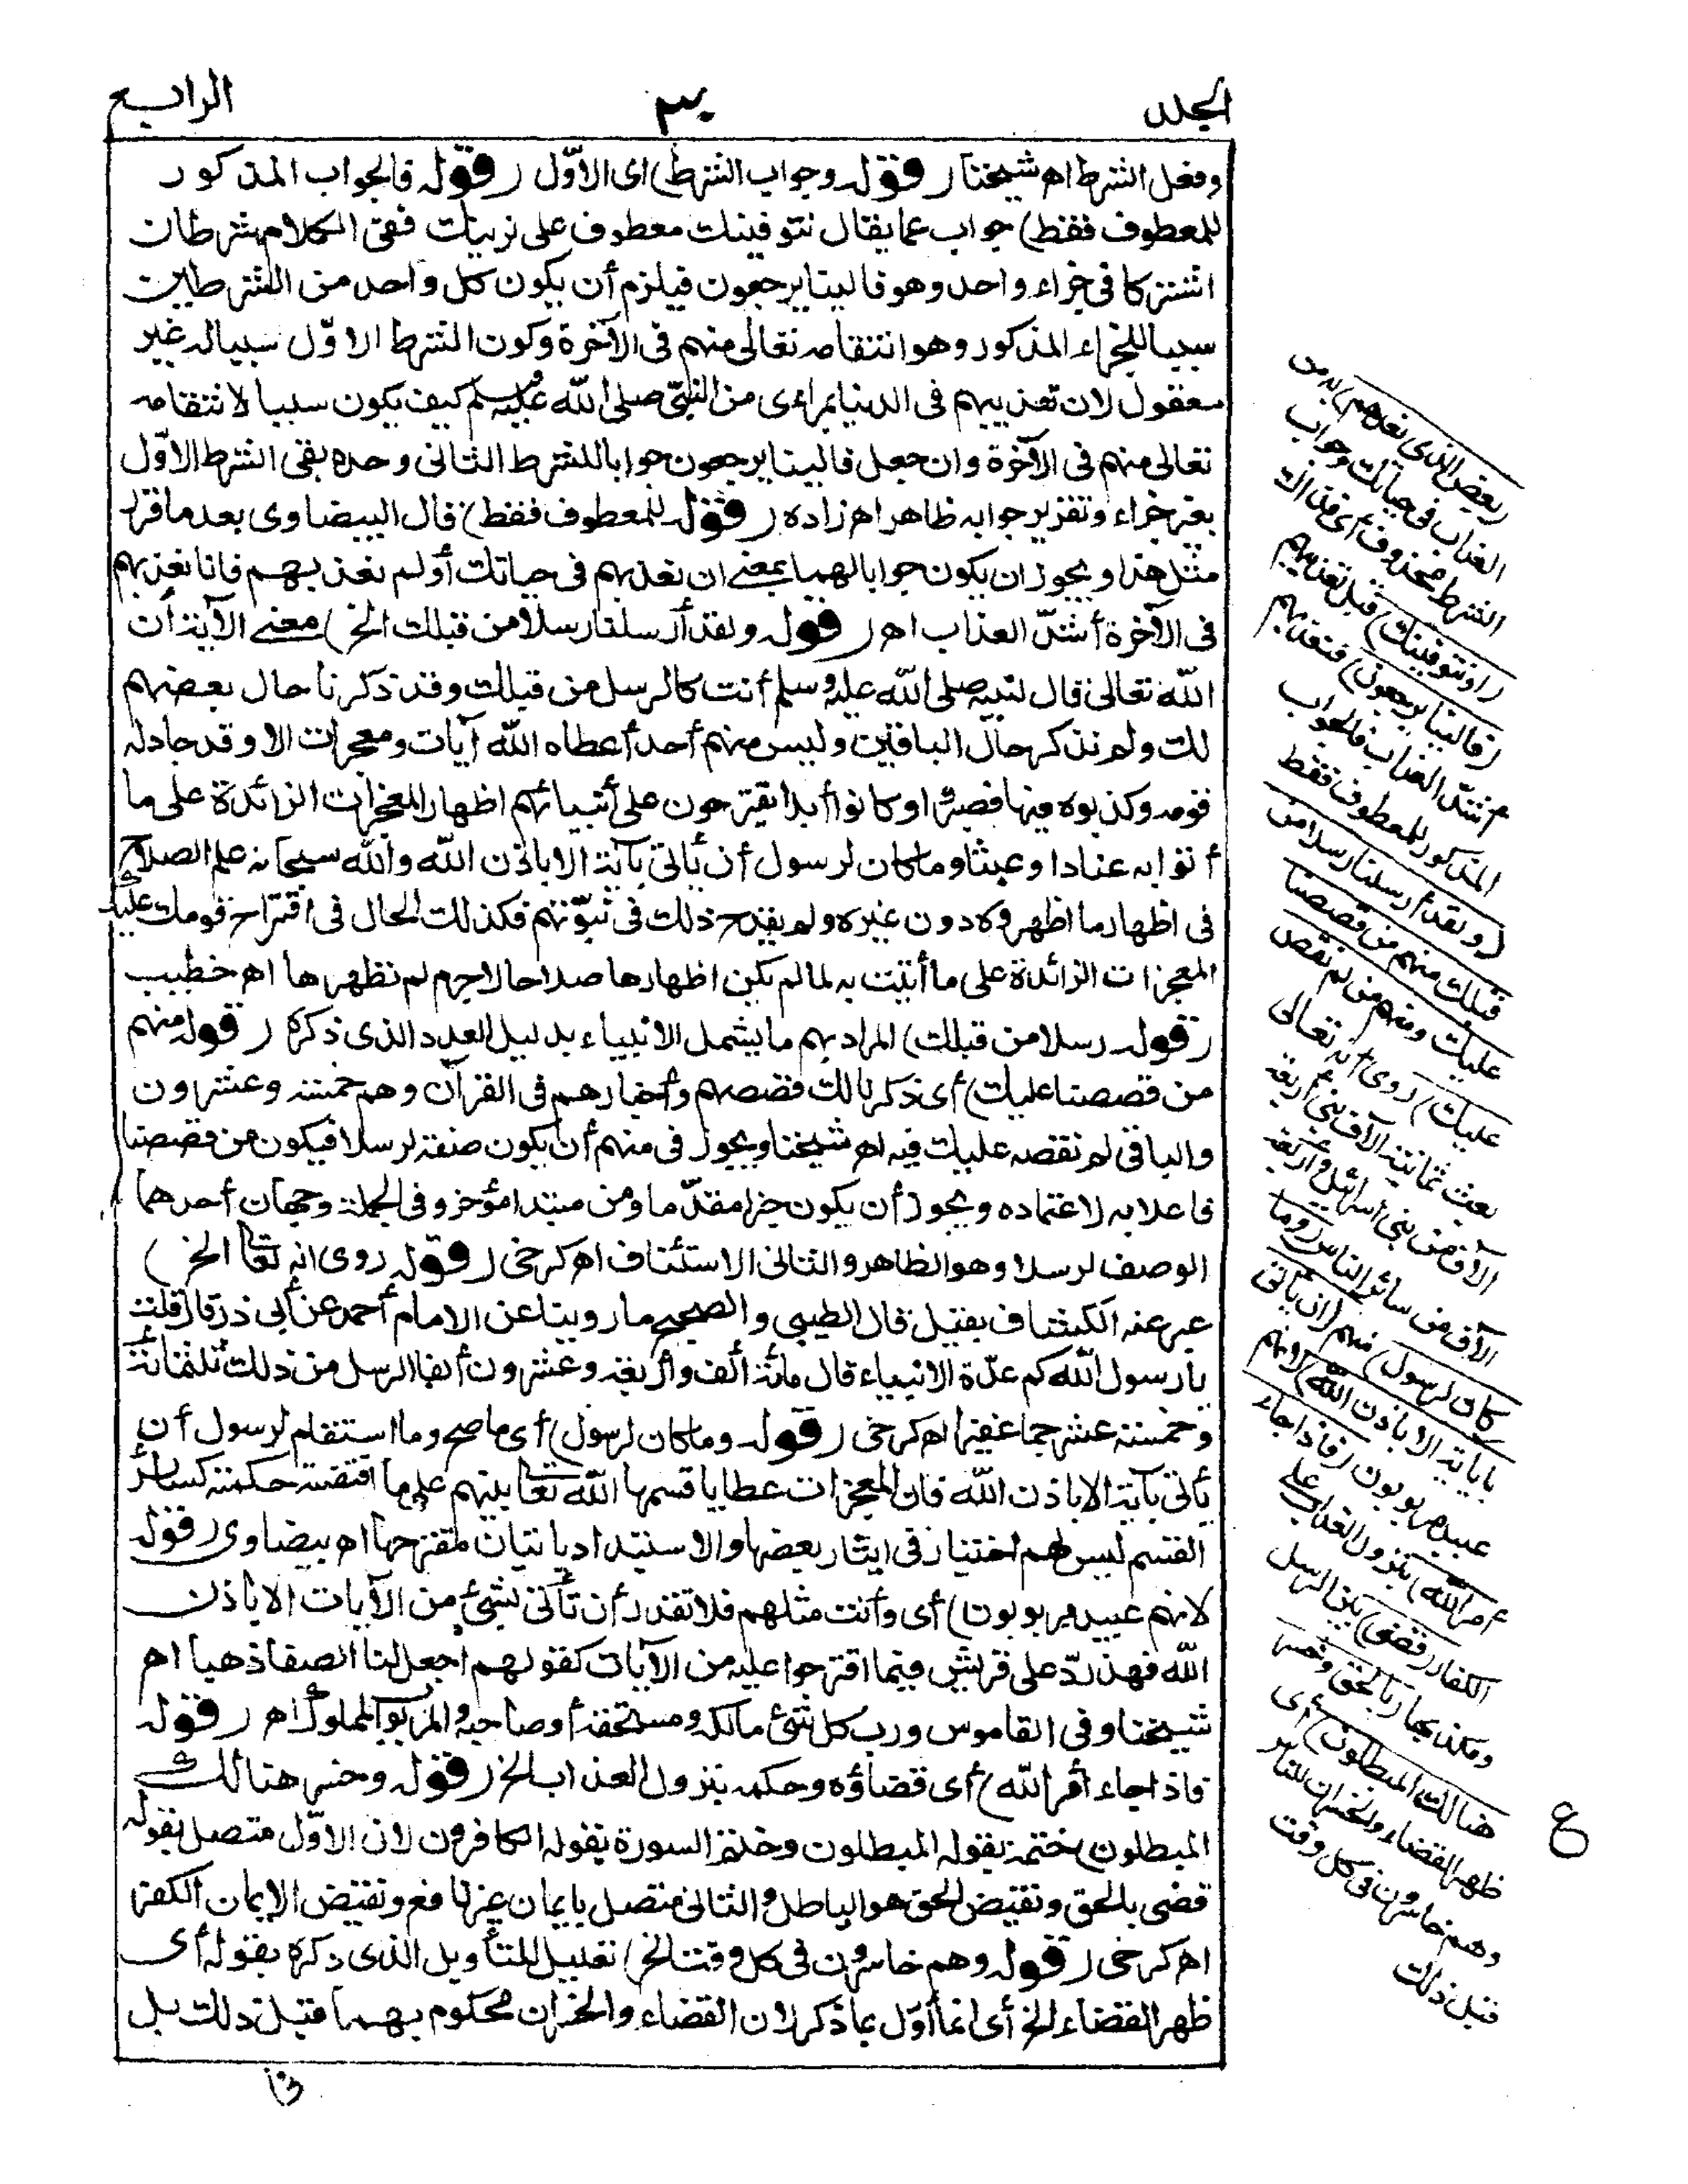 الجلد
٣٠
الرابع
وفعل الشرط اه شيخنا (قوله وجواب الشرط) اى الاوّل (قوله فالجواب المذكور
للمعطوف فقط) جواب عما يقال نتوفينك معطوف على نرينك ففى الكلام شرطان
اشتركا فى جزاء واحد وهو فالينا يرجعون فيلزم أن يكون كل واحد من الشرطين
سببا للجزاء المذكور وهو انتقامه تعالى منهم فى الآخرة وكون الشرط الاوّل سببا له غير
معقول لان تعذيبهم فى الدنيا بمراءى من النبىّ صلى الله عليه وسلم كيف يكون سببا لانتقامه
تعالى منهم فى الآخرة وان جعل فالينا يرجعون جوابا للشرط الثانى وحده بقى الشرط الاوّل
بغير جزاء وتقرير جوابه ظاهر اه زاده (قوله للمعطوف فقط) قال البيضاوى بعد ما قرر
مثل هذا ويجوز ان يكون جوابا لهما بمعنى ان نعذبهم فى حياتك أولم نعذبهم فانا نعذبهم
فى الآخرة أشدّ العذاب اه (قوله ولقد أرسلنا رسلا من قبلك الخ) معنى الآية أن
الله تعالى قال لنبيه صلى الله عليه وسلم أنت كالرسل من قبلك وقد ذكرنا حال بعضهم
لك ولم نذكر حال الباقين وليس منهم أحد أعطاه الله آيات ومعجزات الا وقد جادله
قومه وكذبوه فيها فصبروا وكانوا أبدا يقترحون على أنبيائهم اظهار المعجزات الزائدة على ما
أتوا به عنادا وعبثا وما كان لرسول أن يأتى بآية الا باذن الله والله سبحانه علم الصلاح
فى اظهار ما اظهروه دون غيره ولم يقدح ذلك فى نبوّتهم فكذلك الحال فى اقتراح قومك عليك
المعجزات الزائدة على ما أتيت به لما لم يكن اظهارها صلاحا لاجرم لم نظهرها اه خطيب
(قوله رسلا من قبلك) المراد بهم ما يشمل الانبياء بدليل العدد الذى ذكره (قوله منهم
من قصصنا عليك) أى ذكرنا لك قصصهم وأخبارهم فى القرآن وهم خمسة وعشرون
والباقى لم نقصه عليك فيه اه شيخنا ويجوز فى منهم أن يكون صفة لرسلا فيكون من قصصنا
فاعلا به لاعتماده ويجوز أن يكون خبرا مقدّما ومن مبتدا مؤخر وفى الجملة وجهان أحدهما
الوصف لرسلا وهو الظاهر والثانى الاستئناف اه كرخى (قوله روى انه تعالى الخ)
عبر عنه الكشاف بقيل قال الطيبى والصحيح ما روينا عن الامام أحمد عن أبى ذر قال قلت
يا رسول الله كم عدّة الانبياء قال مائة ألف وأربعة وعشرون ألفا الرسل من ذلك ثلثمائة
وخمسة عشر جما غفيرا اه كرخى (قوله وما كان لرسول) أى ما صح وما استقام لرسول أن
يأتى بآية الا باذن الله فان المعجزات عطايا قسمها الله تعالى بينهم على ما اقتضته حكمته كسائر
القسم ليس لهم اختيار فى ايثار بعضها والاستبداد باتيان المقترح بها اه بيضاوى (قوله
لانهم عبيد مربوبون) أى وأنت مثلهم فلا تقدر أن تأتى بشىء من الآيات الا باذن
الله فهذا ردّ على قريش فيما اقترحوا عليه من الآيات كقولهم اجعل لنا الصفا ذهبا اه
شيخنا وفى القاموس ورب كل شىء مالكه ومستحقه أو صاحبه والمربوب المملوك اه (قوله
فاذا جاء أمر الله) أى قضاؤه وحكمه بنزول العذاب الخ (قوله وخسر هنالك
المبطلون) ختمه بقوله المبطلون وختم السورة بقوله الكافرون لان الاوّل متصل بقوله
قضى بالحق ونقيض الحق هو الباطل والثانى متصل بايمان غير نافع ونقيض الايمان الكفر
اه كرخى (قوله وهم خاسرون فى كل وقت الخ) تعليل للتأويل الذى ذكره بقوله أى
ظهر القضاء الخ أى انما أوّل بما ذكر لان القضاء والخسران محكوم بهما قبل ذلك بل
(بعض الذى نعدهم) به من
العذاب فى حياتك وجواب
الشرط محذوف أى فذاك
(أو نتوفينك) قبل تعذيبهم
(فالينا يرجعون) فنعذبهم
أشدّ العذاب فالجواب
المذكور للمعطوف فقط
(ولقد أرسلنا رسلا من
قبلك منهم من قصصنا
عليك ومنهم من لم نقصص
عليك) روى أنه تعالى
بعث ثمانية آلاف نبى أربعة
آلاف من بنى اسرائيل وأربعة
آلاف من سائر الناس (وما
كان لرسول) منهم (ان يأتى
بآية الا باذن الله) لانهم
عبيد مربوبون (فاذا جاء
أمر الله) بنزول العذاب على
الكفار (قضى) بين الرسل
ومكذبيها (بالحق وخسر
هنالك المبطلون) أى
ظهر القضاء والخسران للناس
وهم خاسرون فى كل وقت
قبل ذلك
ع